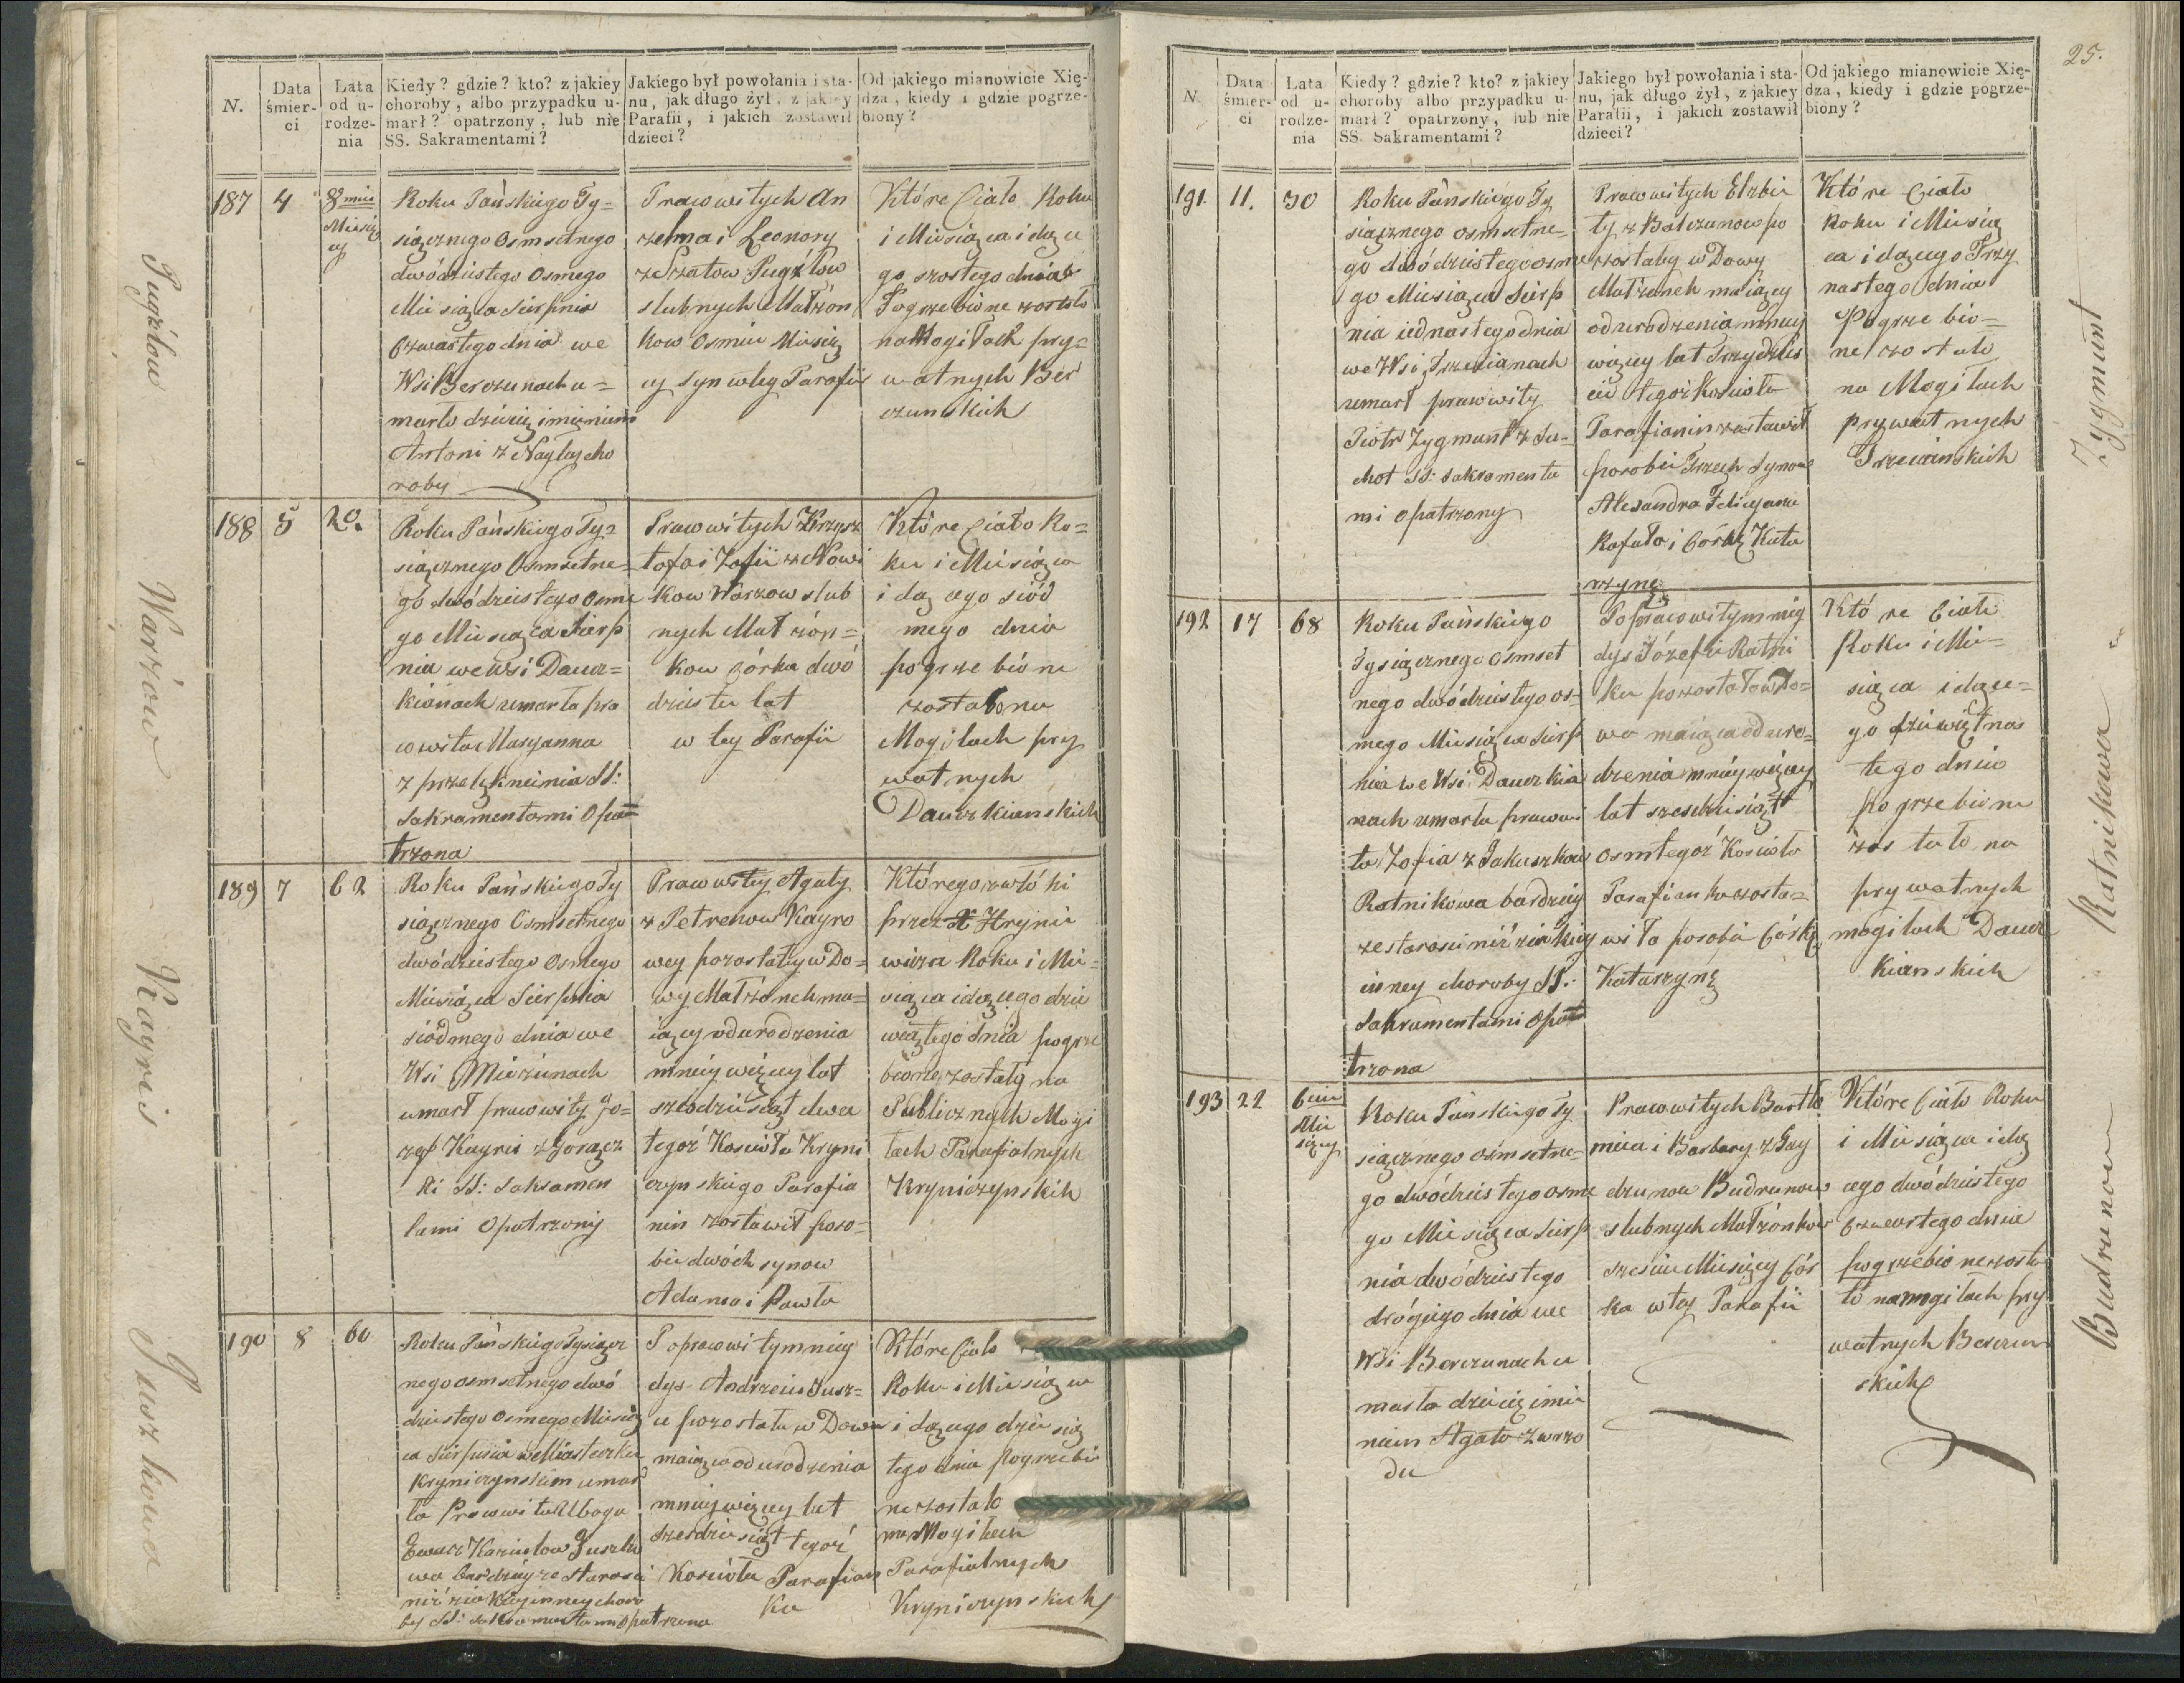 N.
Data śmier-ci
Lata od u-rodze-nia
Kiedy? gdzie? kto? z jakiey
choroby, albo przypadku u-
marł? opatrzony, lub nie
SS. Sakramentami?
Jakiego był powołania i sta-
nu, jak długo żył, z jakiey
Parafii, i jakich zostawił
dzieci?
Od jakiego mianowicie Xię-
dza, kiedy i gdzie pogrze-
biony?
187
4
8miu
Miesię
cy
Roku Pańskiego Ty=
siącznego Osmsetnego
dwódziestego Osmego
Miesiąca Sierpnia
Czwartego dnia we
Wsi Berczunach u=
marło dziecię imieniem
Antoni z Nagłey cho
roby
Prawowitych An
zelma i Leonory
z Szatow Pugźlow
slubnych Małżon
kow Osmiu Miesię
cy Syn w tey Parafii
Które Ciało Roku
i Miesiąca idące
go szostego dnia
Pogrzebione zostało
na Mogiłach pry=
watnych Ber
czunskich
188
5
20.
Roku Pańskiego Ty=
siącznego Osmsetne=
go dwódziestego Osme
go Miesiąca Sierp
nia we wsi Daucz=
kianach umarła pra
wowita Maryanna
z przelęknienia SS:
Sakramentami Opa=
trzona
Prawowitych Krzysz
tofa i Zofii z Nowi
kow Warzow slub
nych Małżon=
kow Córka dwó
dziestu lat
w tey Parafii
Które Ciało Ro=
ku i Miesiąca
idącego siód
mego dnia
pogrzebione
zostało na
Mogiłach pry
watnych
Dauczkianskich
189
7
62
Roku Pańskiego Ty
siącznego Osmsetnego
dwódziestego Osmego
Miesiąca Sierpnia
siódmego dnia we
Wsi Mieżunach
umarł prawowity Jo=
zef Kayris z Gorącz
ki SS: Sakramen
tami Opatrzony
Prawowitey Agaty
z Petrenow Kayro
wey pozostały w Do=
wy Małżonek ma=
iący od urodzenia
mniey więcey lat
szesdziesiąt dwa
tegoż Koscioła Kryni
czynskiego Parafia
nin zostawił poso=
bie dwóch synow
Adama i Pawła
Którego zwłoki
przez X Hrynie
wicza Roku i Mie=
siąca idącego dzie
wiątego dnia pogrze
bione zostały na
Publicznych Mogi
łach Parafialnych
Kryniczynskich
190
8
60
Roku Pańskiego Tysiącz
nego osmsetnego dwó
dziestego Osmego Miesią
ca Sierpnia w Miasteczku
Kryniczynskim umar
ła Prawowita Uboga
Ewa z Kaziulow Juszko
wa bardziey ze starosci
niż z iakiey inney choro
by SS: Sakramentami Opatrzona
Poprawowitym nie
dys Andrzeiu Jusz=
ce pozostała w Dowa
maiąca od urodzenia
mniey więcey lat
szesdziesiąt tegoż
Kościoła Parafian
ka
Które Ciało
Roku i Miesiąca
idącego dziesią
tego dnia Pogrzebio
ne zostało
na Mogiłach
Parafialnych
Kryniczynskich
Pugźlow
Warżow
Kayris
Juszkowa
25.
N.
Data śmier-ci
Lata od u-rodze-nia
Kiedy? gdzie? kto? z jakiey
choroby albo przypadku u-
marł? opatrzony, lub nie
SS. Sakramentami?
Jakiego był powołania i sta-
nu, jak długo żył, z jakiey
Parafii, i jakich zostawił
dzieci?
Od jakiego mianowicie Xię-
dza, kiedy i gdzie pogrze-
biony?
191.
11.
30
Roku Pańskiego Ty
siącznego osmsetne=
go dwódziestego osme
go Miesiąca Sierp
nia iednastego dnia
we Wsi Trzecianach
umarł prawowity
Piotr Zygmunt z Su=
chot SS: Sakramenta
mi opatrzony
Prawowitych Elzbie
ty z Balczunow po
zostały w Dowy
Małżonek maiący
od urodzenia mniey
więcey lat Trzydzies
ci tegoż Kosciola
Parafianin zostawił
posobie Trzech Synow
Alexandra Felicyana
Rafała i Córkę Kata
rzynę
Które Ciało
Roku i Miesią
ca idącego Trzy
nastego dnia
Pogrzebio=
ne zostało
na Mogiłach
prywatnych
Trzecianskich
192
17
68
Roku Pańskiego
Tysiącznego Osmset
nego dwódziestego os=
mego Miesiąca Sierp
nia we Wsi Dauczkia
nach umarła prawowi
ta Zofia z Jakuszkow
Ratnikowa bardziey
ze starosci niż z iakiey
inney choroby SS:
Sakramentami Opa
trzona
Poprawowitym nig
dys Józefie Ratni
ku pozostała w Do=
wa maiąca od uro=
dzenia mniey więcey
lat szescdziesiąt
osm tegoż Kosciola
Parafianka zosta=
wiła posobie Córkę
Katarzynę
Które Ciało
Roku i Mie=
siąca idące=
go dziewiętnas
tego dnia
pogrzebione
zostało na
prywatnych
mogiłach Daucz
kianskich
193
22
6ciu
Mie
sięcy
Roku Pańskiego Ty
siącznego osmsetne=
go dwódziestego osme
go Miesiąca Sierp
nia dwódziestego
drógiego dnia we
Wsi Berczunach u
marła dziecię imie
niem Agata z wrzo
du
Prawowitych Bartło
mieia i Barbary z Gay
dzunow Budrunow
slubnych Małżonkow
szesciu Miesięcy Cór
ka w tey Parafii
Które Ciało Roku
i Miesiąca idą
cego dwódziestego
czwartego dnia
pogrzebione zosta
ło na mogiłach pry
watnych Berczun
skich
Zygmunt
Ratnikowa
Budrunow